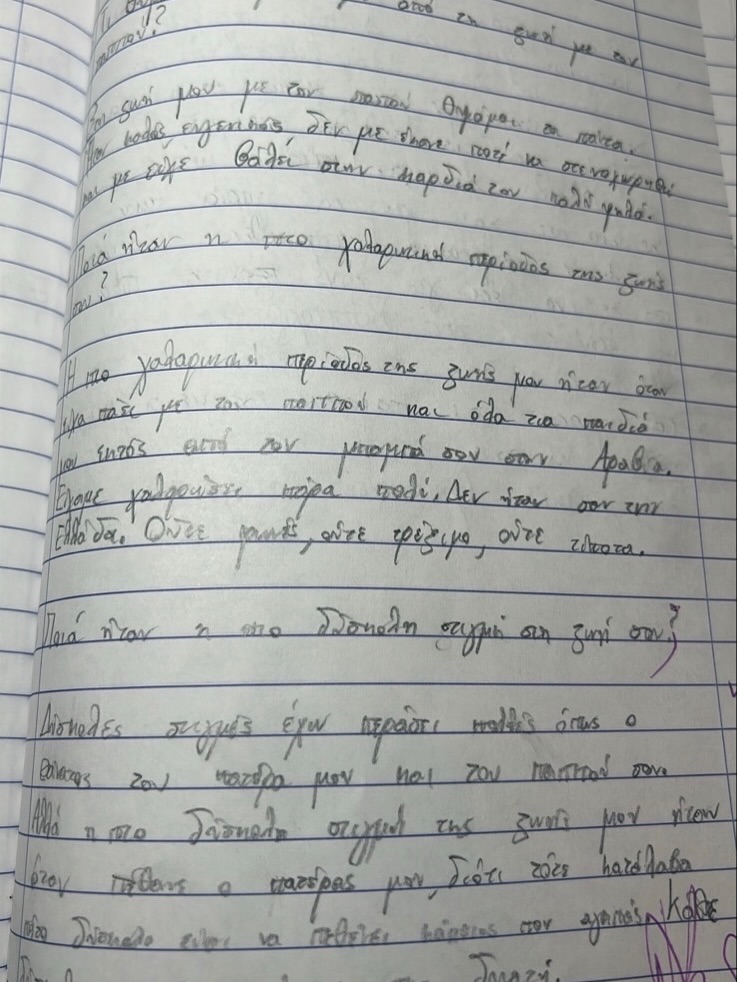 από τη ζωή με τον
παππού?
ζωή μου με τον παππού θυμάμαι τα πάντα.
Ήταν καλός, ευγενικός, δεν με έκανε ποτέ να στεναχωρηθώ
και με είχε βάλει στην καρδιά του πολύ ψηλά.
Ποιά ήταν η πιο χαλαρωτική περίοδος της ζωής
σου?
Η πιο χαλαρωτική περίοδος της ζωής μου ήταν όταν
είχα πάει με τον παππού και όλα τα παιδιά
μου εκτός από τον μπαμπά σου στην Αραβία.
Είχαμε πάρα πολύ. Δεν ήταν σαν την
Ελλάδα. Ούτε φωνές, ούτε τρέξιμο, ούτε τίποτα.
Ποιά ήταν η πιο δύσκολη στιγμή στη ζωή σου?
Δύσκολες στιγμές έχω περάσει πολλές όπως ο
θάνατος του πατέρα μου και του παππού σου.
Αλλά η πιο δύσκολη στιγμή της ζωής μου ήταν
όταν πέθανε ο πατέρας μου, διότι τότε κατάλαβα
πόσο δύσκολο είναι να πεθαίνει κάποιος που αγαπάς. Κάθε